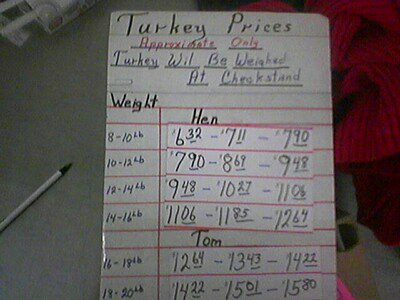 Turkey Prices
Approximate Only
Turkey Wil Be Weighed
At Checkstand
Weight
Hen
8-10 Lb $6.32 - $7.11 - $7.90
10-12 Lb $7.90 - $8.69 - $9.48
12-14 Lb $9.48 - $10.27 - $11.06
14-16 Lb $11.06 - $11.85 - $12.64
Tom
16-18 Lb $12.64 - $13.43 - $14.22
18-20 Lb $14.22 - $15.01 - $15.80